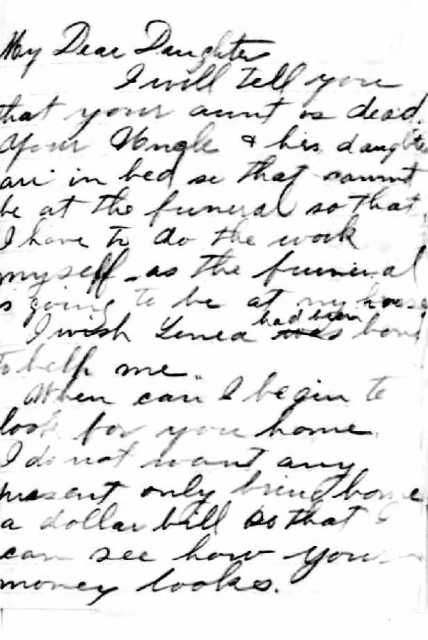 My Dear Daughter
I will tell you
that your aunt is dead.
Your Ungle & his daughter
are in bed so that cannot
be at the funeral so that
I have to do the work
myself - as the funeral
is going to be at my house
I wish Linea had been home
to help me.
When can I begin to
look for you home.
I do not want any
present only bring home
a dollar bill so that I
can see how your
money looks.